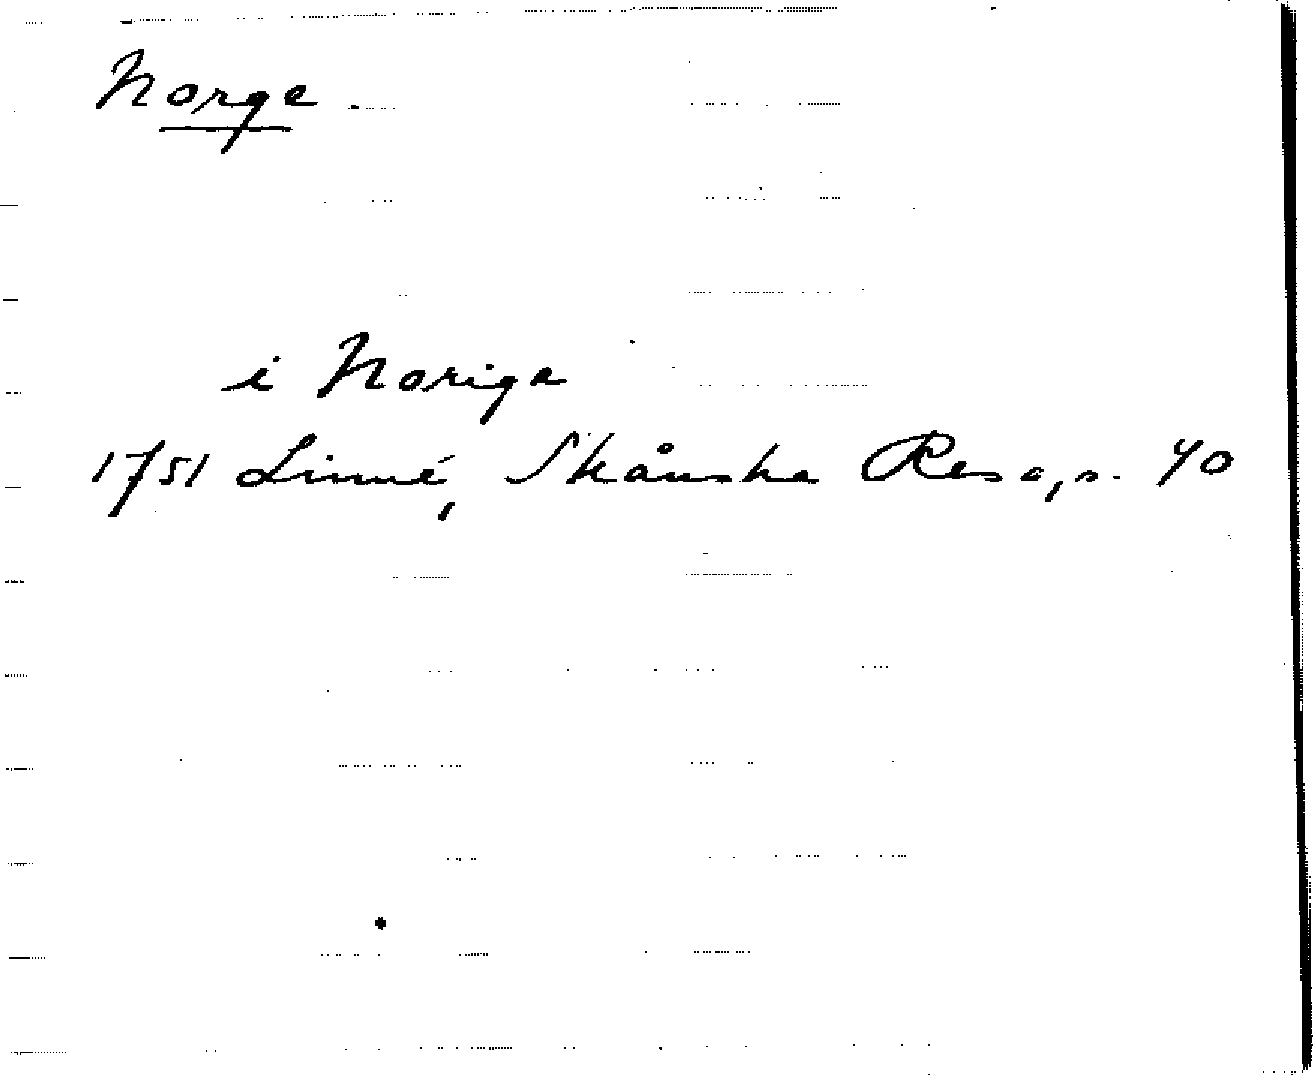 Norge
i Norige
1751 Linné, Skånska Resa, s. 40